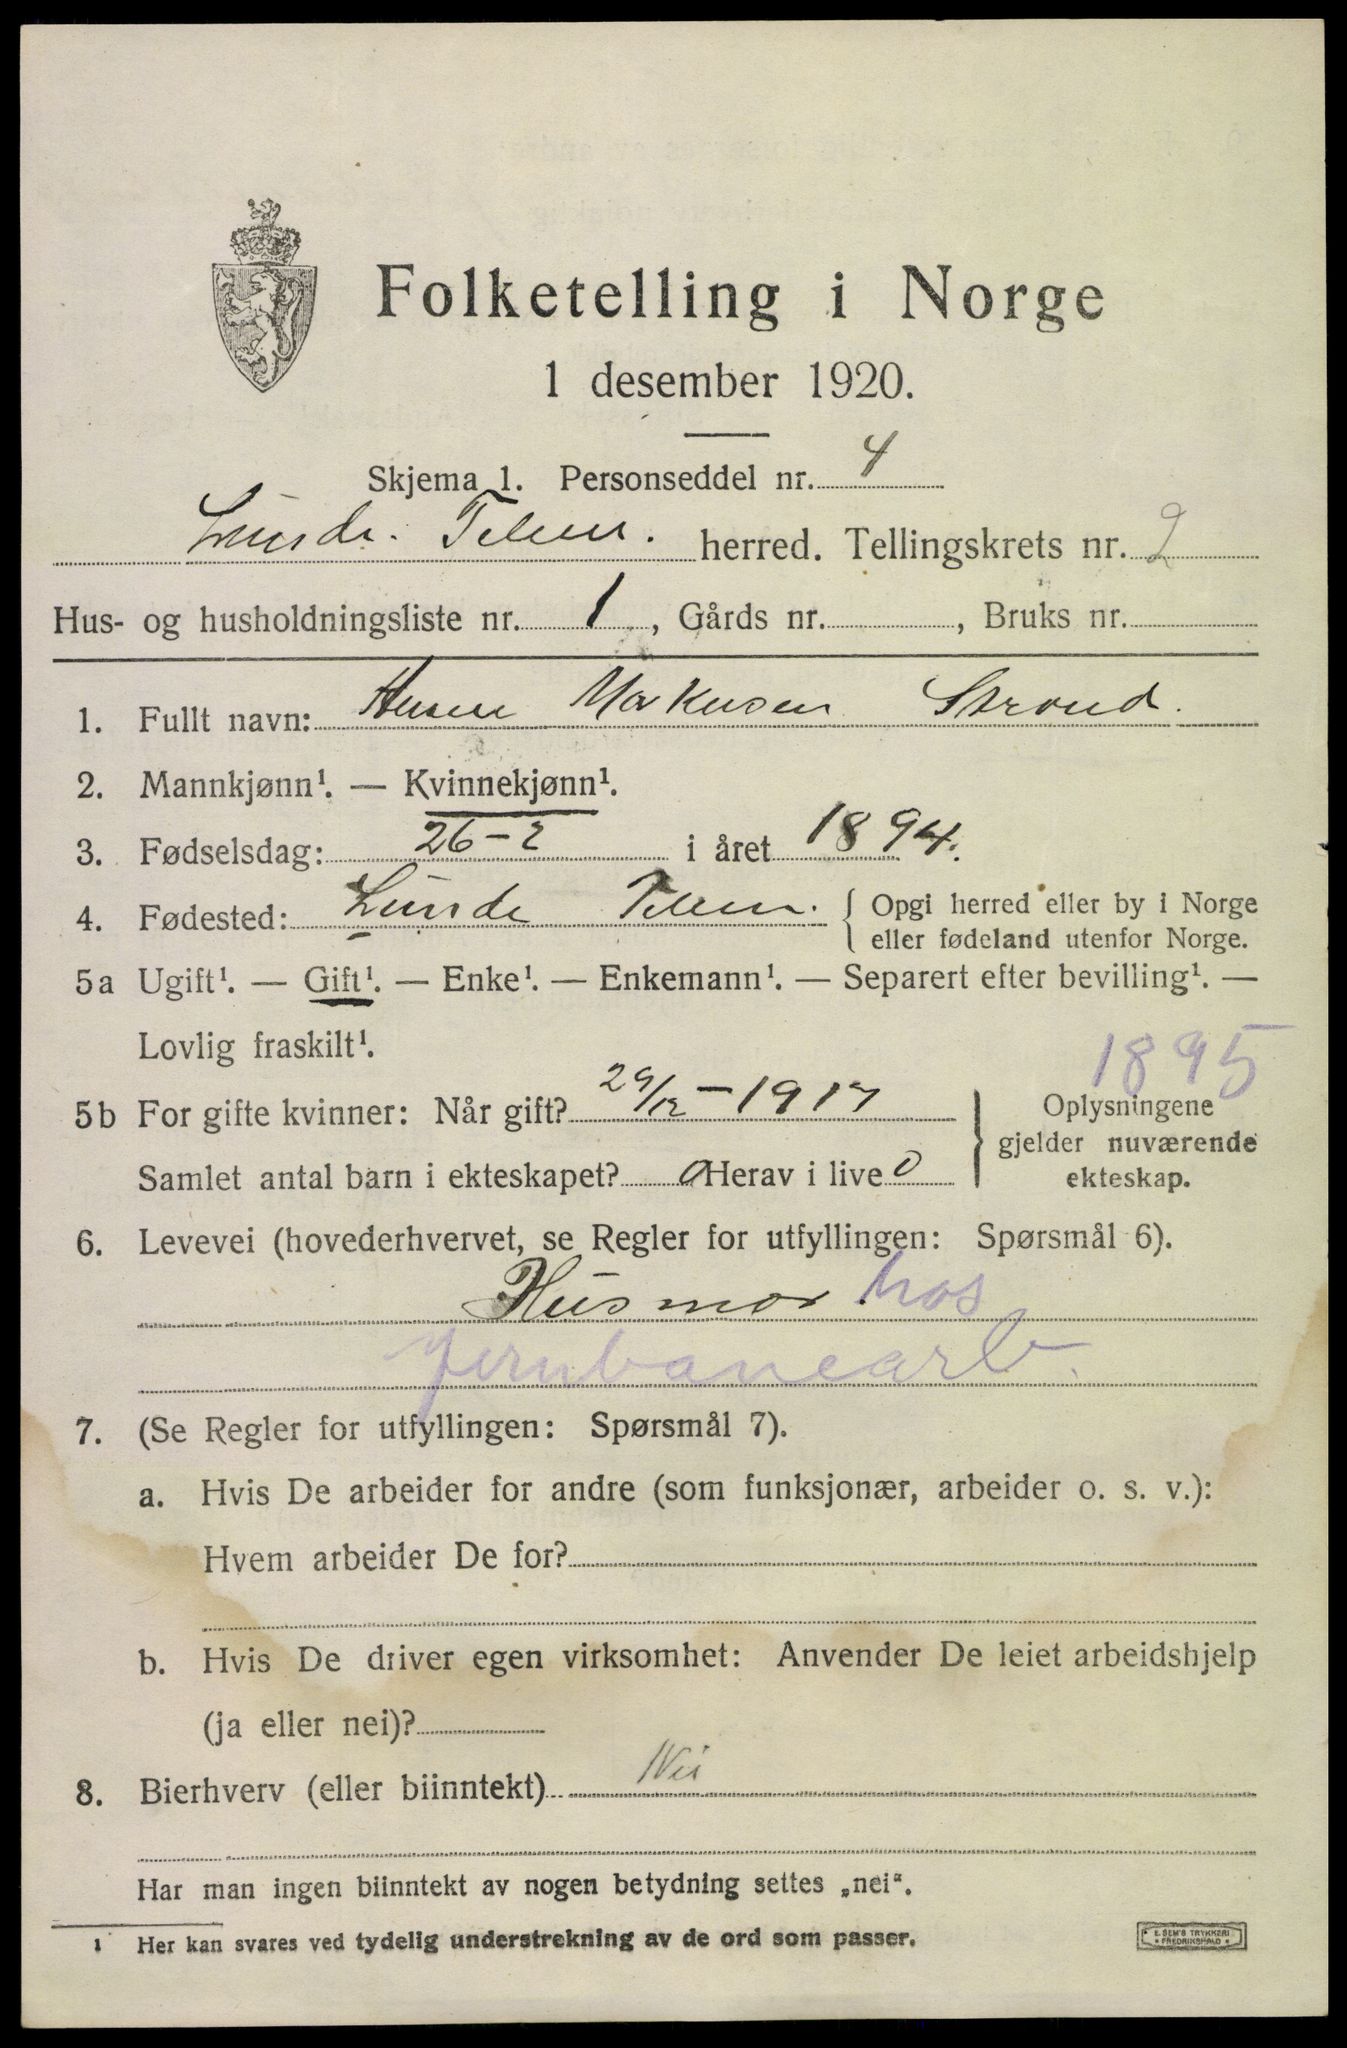 Folketelling i Norge
1 desember 1920.
Skjema 1. Personseddel nr. 4
Lunde. Telem. herred. Tellingskrets nr. 2
Hus- og husholdningsliste nr. 1, Gårds nr. , Bruks nr.
1. Fullt navn: Markusen Strond.
2. Mannkjønn¹. — Kvinnekjønn¹.
3. Fødselsdag: 26-2 i året 1894.
4. Fødested: Lunde Telem. { Opgi herred eller by i Norge
eller fødeland utenfor Norge.
5a Ugift¹. — Gift¹. — Enke¹. — Enkemann¹. — Separert efter bevilling¹. —
Lovlig fraskilt¹.
1895
5b For gifte kvinner: Når gift? 29/12 - 1917
Samlet antal barn i ekteskapet? 0 Herav i live 0
Oplysningene
gjelder nuværende
ekteskap.
6. Levevei (hovederhvervet, se Regler for utfyllingen: Spørsmål 6).
Husmor hos
jernbanearb.
7. (Se Regler for utfyllingen: Spørsmål 7).
a. Hvis De arbeider for andre (som funksjonær, arbeider o. s. v.):
Hvem arbeider De for?
b. Hvis De driver egen virksomhet: Anvender De leiet arbeidshjelp
(ja eller nei)?
8. Bierhverv (eller biinntekt) Nei
Har man ingen biinntekt av nogen betydning settes „nei".
1 Her kan svares ved tydelig understrekning av de ord som passer.
E. SEM'S TRYKKERI
FREDRIKSHALD